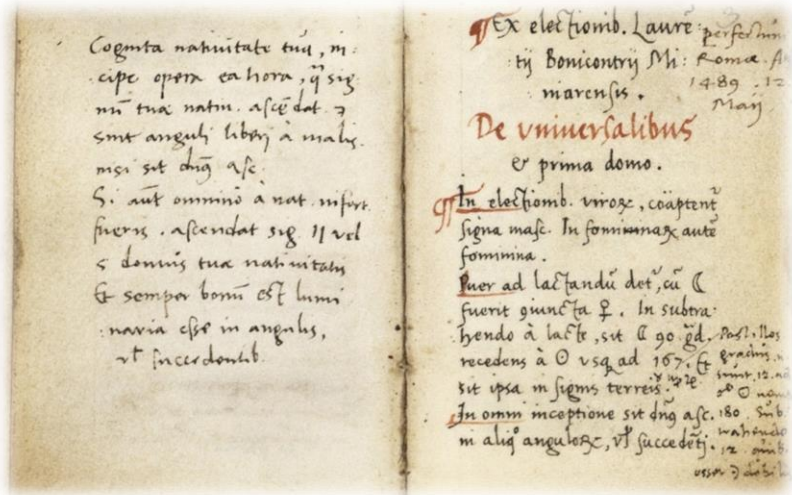 Cognita natiuitate tua, in:
cipe opera ea hora, q̃ sig
nũ tuæ natiu. ascẽdat ⁊
sint anguli liberi à malis.
nisi sit dñs asc.
Si aũt omnino à nat. infort.
fueris. ascendat sig. 11 vel
5 domus tuæ natiuitatis
Et semper bonũ est lumi
naria esse in angulis,
vl̃ succedentib.
¶Ex electionib. Laurẽ
tij Bonicontrij Mi:
niatensis.
perfectum
Romæ.
1489. 12
Maij
De vniuersalibus
& prima domo.
¶In electionib. viroꝝ, coaptent̃
signa masc. In fominaꝝ autẽ
fominina.
Puer ad lactandũ det̃, cũ ☾
fuerit ꝯiuncta ♀. In subtra:
hendo à lacte, sit ☾ 90 gd.
recedens à ☉ vsq ad 167. Et
sit ipsa in signis terreis.
In omni inceptione sit dñs asc.
in aliq̊ anguloꝝ, vl̃ succedẽti.
Post illos
gradus
sunt. 12.
☉
180. Sub
trahendo
12.